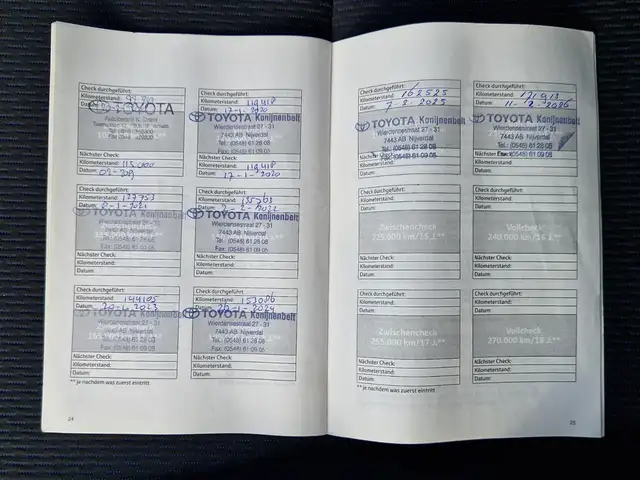 Check durchgeführt:
Kilometerstand:
Datum:
TOYOTA
Nächster Check:
Kilometerstand: 115.000
Datum:
Check durchgeführt:
Kilometerstand: 119418
Datum: 17-1-2020
TOYOTA Konijnenbelt
Wierdensestraat 27 - 31
7443 AB Nijverdal
Tel.: (0548) 61 28 08
Fax: (0548) 61 09 05
Nächster Check:
Kilometerstand: 119418
Datum: 17-1-2020
Check durchgeführt:
Kilometerstand: 127753
Datum: 2-1-2021
TOYOTA Konijnenbelt
Nächster Check:
Kilometerstand:
Datum:
Check durchgeführt:
Kilometerstand: 135763
Datum: 2-2-2022
TOYOTA Konijnenbelt
Wierdensestraat 27 - 31
7443 AB Nijverdal
Tel.: (0548) 61 28 08
Fax: (0548) 61 09 05
Nächster Check:
Kilometerstand:
Datum:
Check durchgeführt:
Kilometerstand: 144105
Datum: 20-1-2023
TOYOTA Konijnenbelt
Wierdensestraat 27 - 31
7443 AB Nijverdal
Tel.: (0548) 61 28 08
Fax: (0548) 61 09 05
Nächster Check:
Kilometerstand:
Datum:
Check durchgeführt:
Kilometerstand: 153086
Datum: 20-1-2024
TOYOTA Konijnenbelt
Wierdensestraat 27 - 31
7443 AB Nijverdal
Tel.: (0548) 61 28 08
Fax: (0548) 61 09 05
Nächster Check:
Kilometerstand:
Datum:
** je nachdem was zuerst eintritt
24
Check durchgeführt:
Kilometerstand: 162525
Datum: 7-2-2025
TOYOTA Konijnenbelt
Wierdensestraat 27 - 31
7443 AB Nijverdal
Tel.: (0548) 61 28 08
Fax: (0548) 61 09 05
Nächster Check:
Kilometerstand:
Datum:
Check durchgeführt:
Kilometerstand: 171913
Datum: 11-2-2026
TOYOTA Konijnenbelt
Wierdensestraat 27 - 31
7443 AB Nijverdal
Tel.: (0548) 61 28 08
Fax: (0548) 61 09 05
Nächster Check:
Kilometerstand:
Datum:
Check durchgeführt:
Kilometerstand:
Datum:
Zwischencheck
225.000 km/15 J.**
Nächster Check:
Kilometerstand:
Datum:
Check durchgeführt:
Kilometerstand:
Datum:
Vollcheck
240.000 km/16 J.**
Nächster Check:
Kilometerstand:
Datum:
Check durchgeführt:
Kilometerstand:
Datum:
Zwischencheck
255.000 km/17 J.**
Nächster Check:
Kilometerstand:
Datum:
Check durchgeführt:
Kilometerstand:
Datum:
Vollcheck
270.000 km/18 J.**
Nächster Check:
Kilometerstand:
Datum:
** je nachdem was zuerst eintritt
25